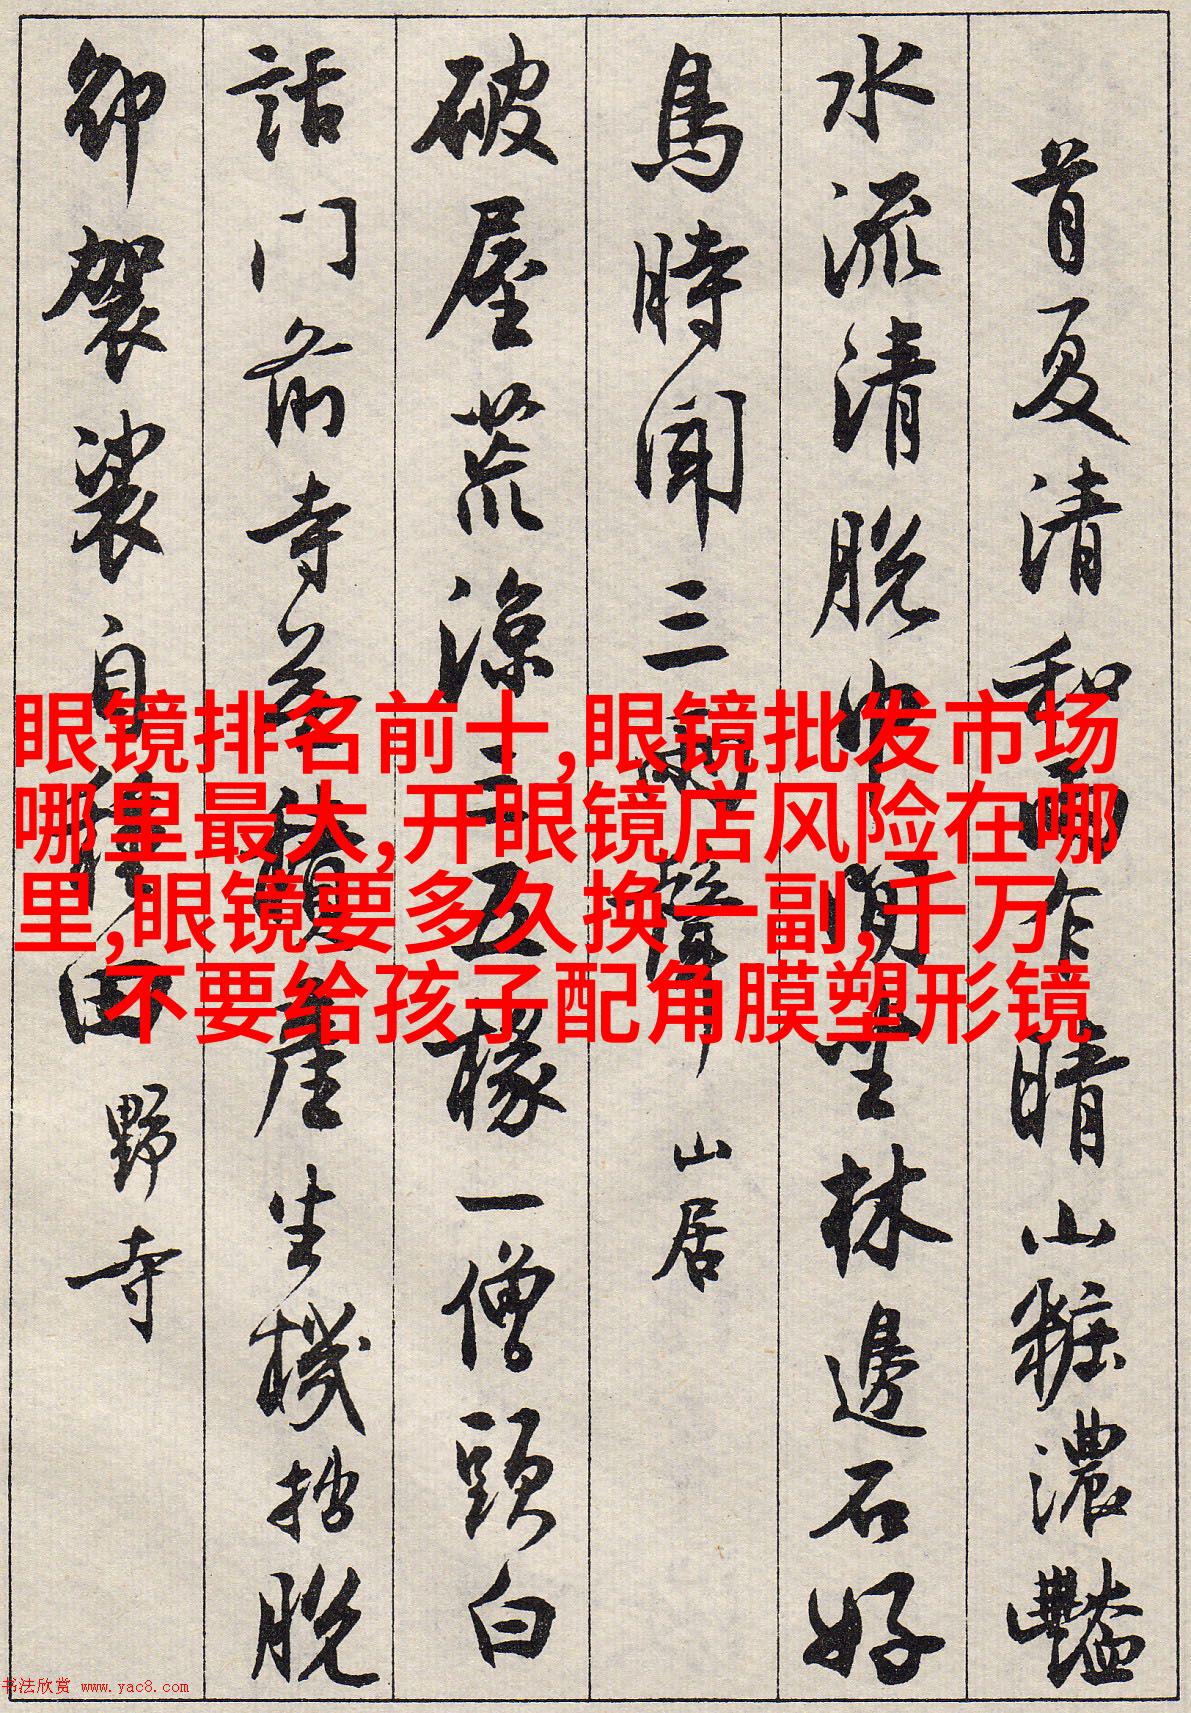 首夏清和雨乍晴山粧濃豔
水流清脱巾閒坐林邊石好
鳥時聞三兩聲 山居
破屋荒涼三五椽一僧頭白
話門前寺積產生機拙脱
卻袈裟自種田 野寺
眼镜排名前十,眼镜批发市场
哪里最大,开眼镜店风险在哪
里,眼镜要多久换一副,千万
不要给孩子配角膜塑形镜
书法欣赏 www.yac8.com